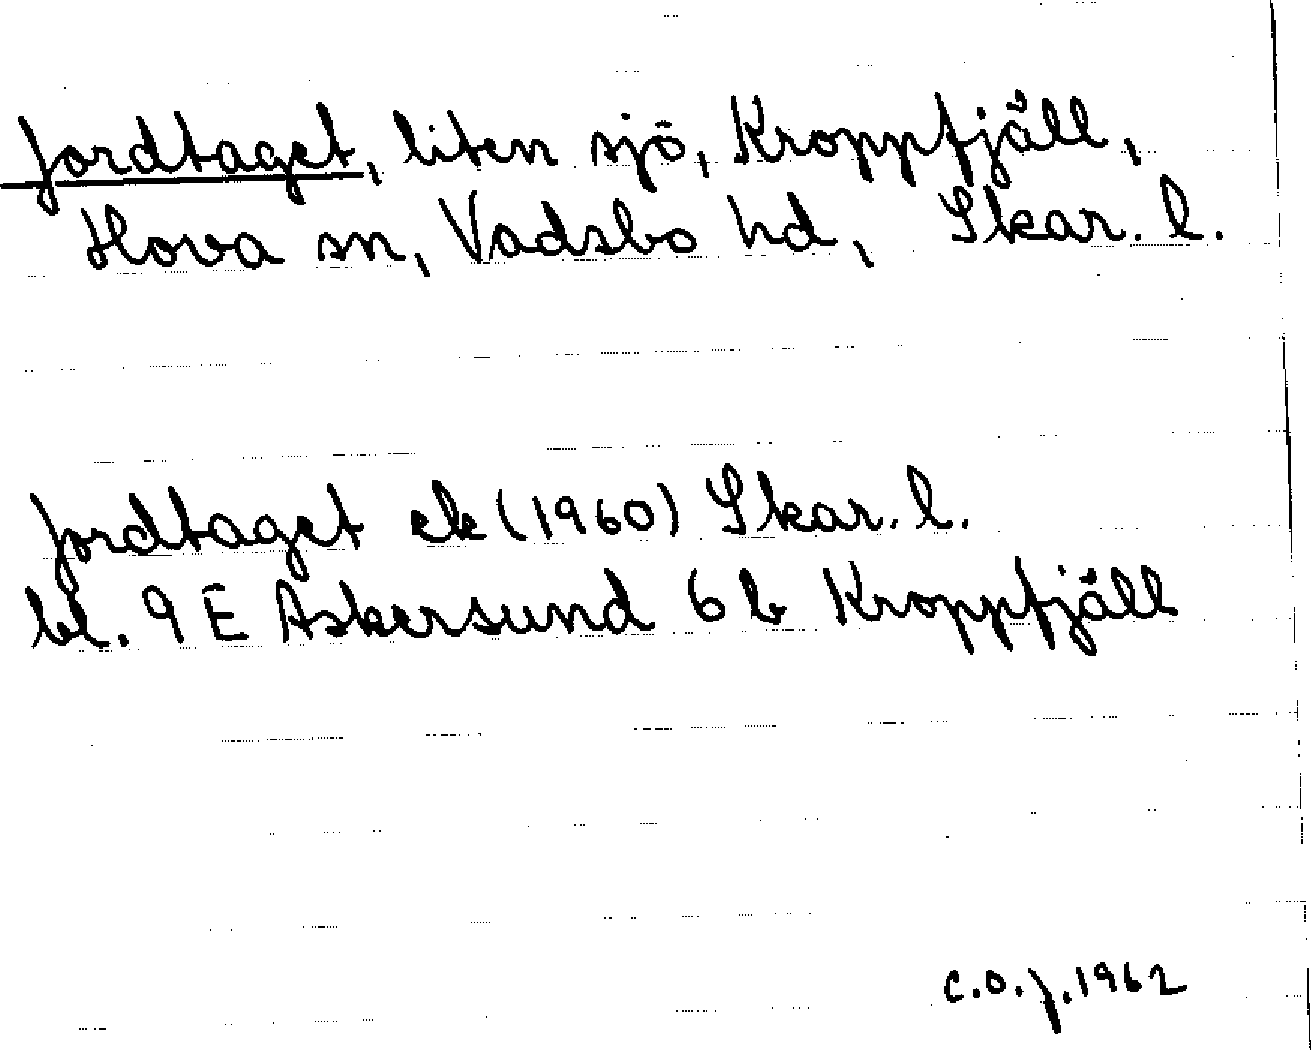 Jordtaget, liten sjö, Kroppfjäll,
Hova sn, Vadsbo hd, Skar. l.
Jordtaget ek (1960) Skar. l.
bl. 9 E Askersund 6 b Kroppfjäll
C.O.J. 1962